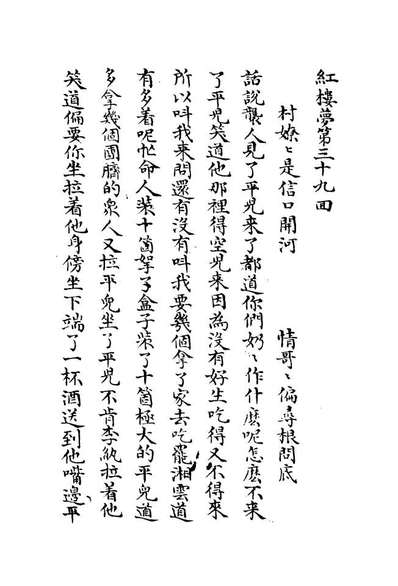 紅樓夢第三十九回
村嫽〻是信口開河　情哥〻偏尋根問底
話說襲人見了平兒來了都道你們奶〻作什麽呢怎麽不来
了平児笑道他那裡得空児来因為没有好生吃得又不得來
所以呌我来問還有没有呌我要幾個拿了家去吃罷湘雲道
有多着呢忙命人装十箇挐了盒子装了十箇極大的平兒道
多拿幾個團臍的衆人又拉平兒坐了平児不肯李紈拉着他
笑道偏要你坐拉着他身傍坐下端了一杯酒送到他嘴邊平